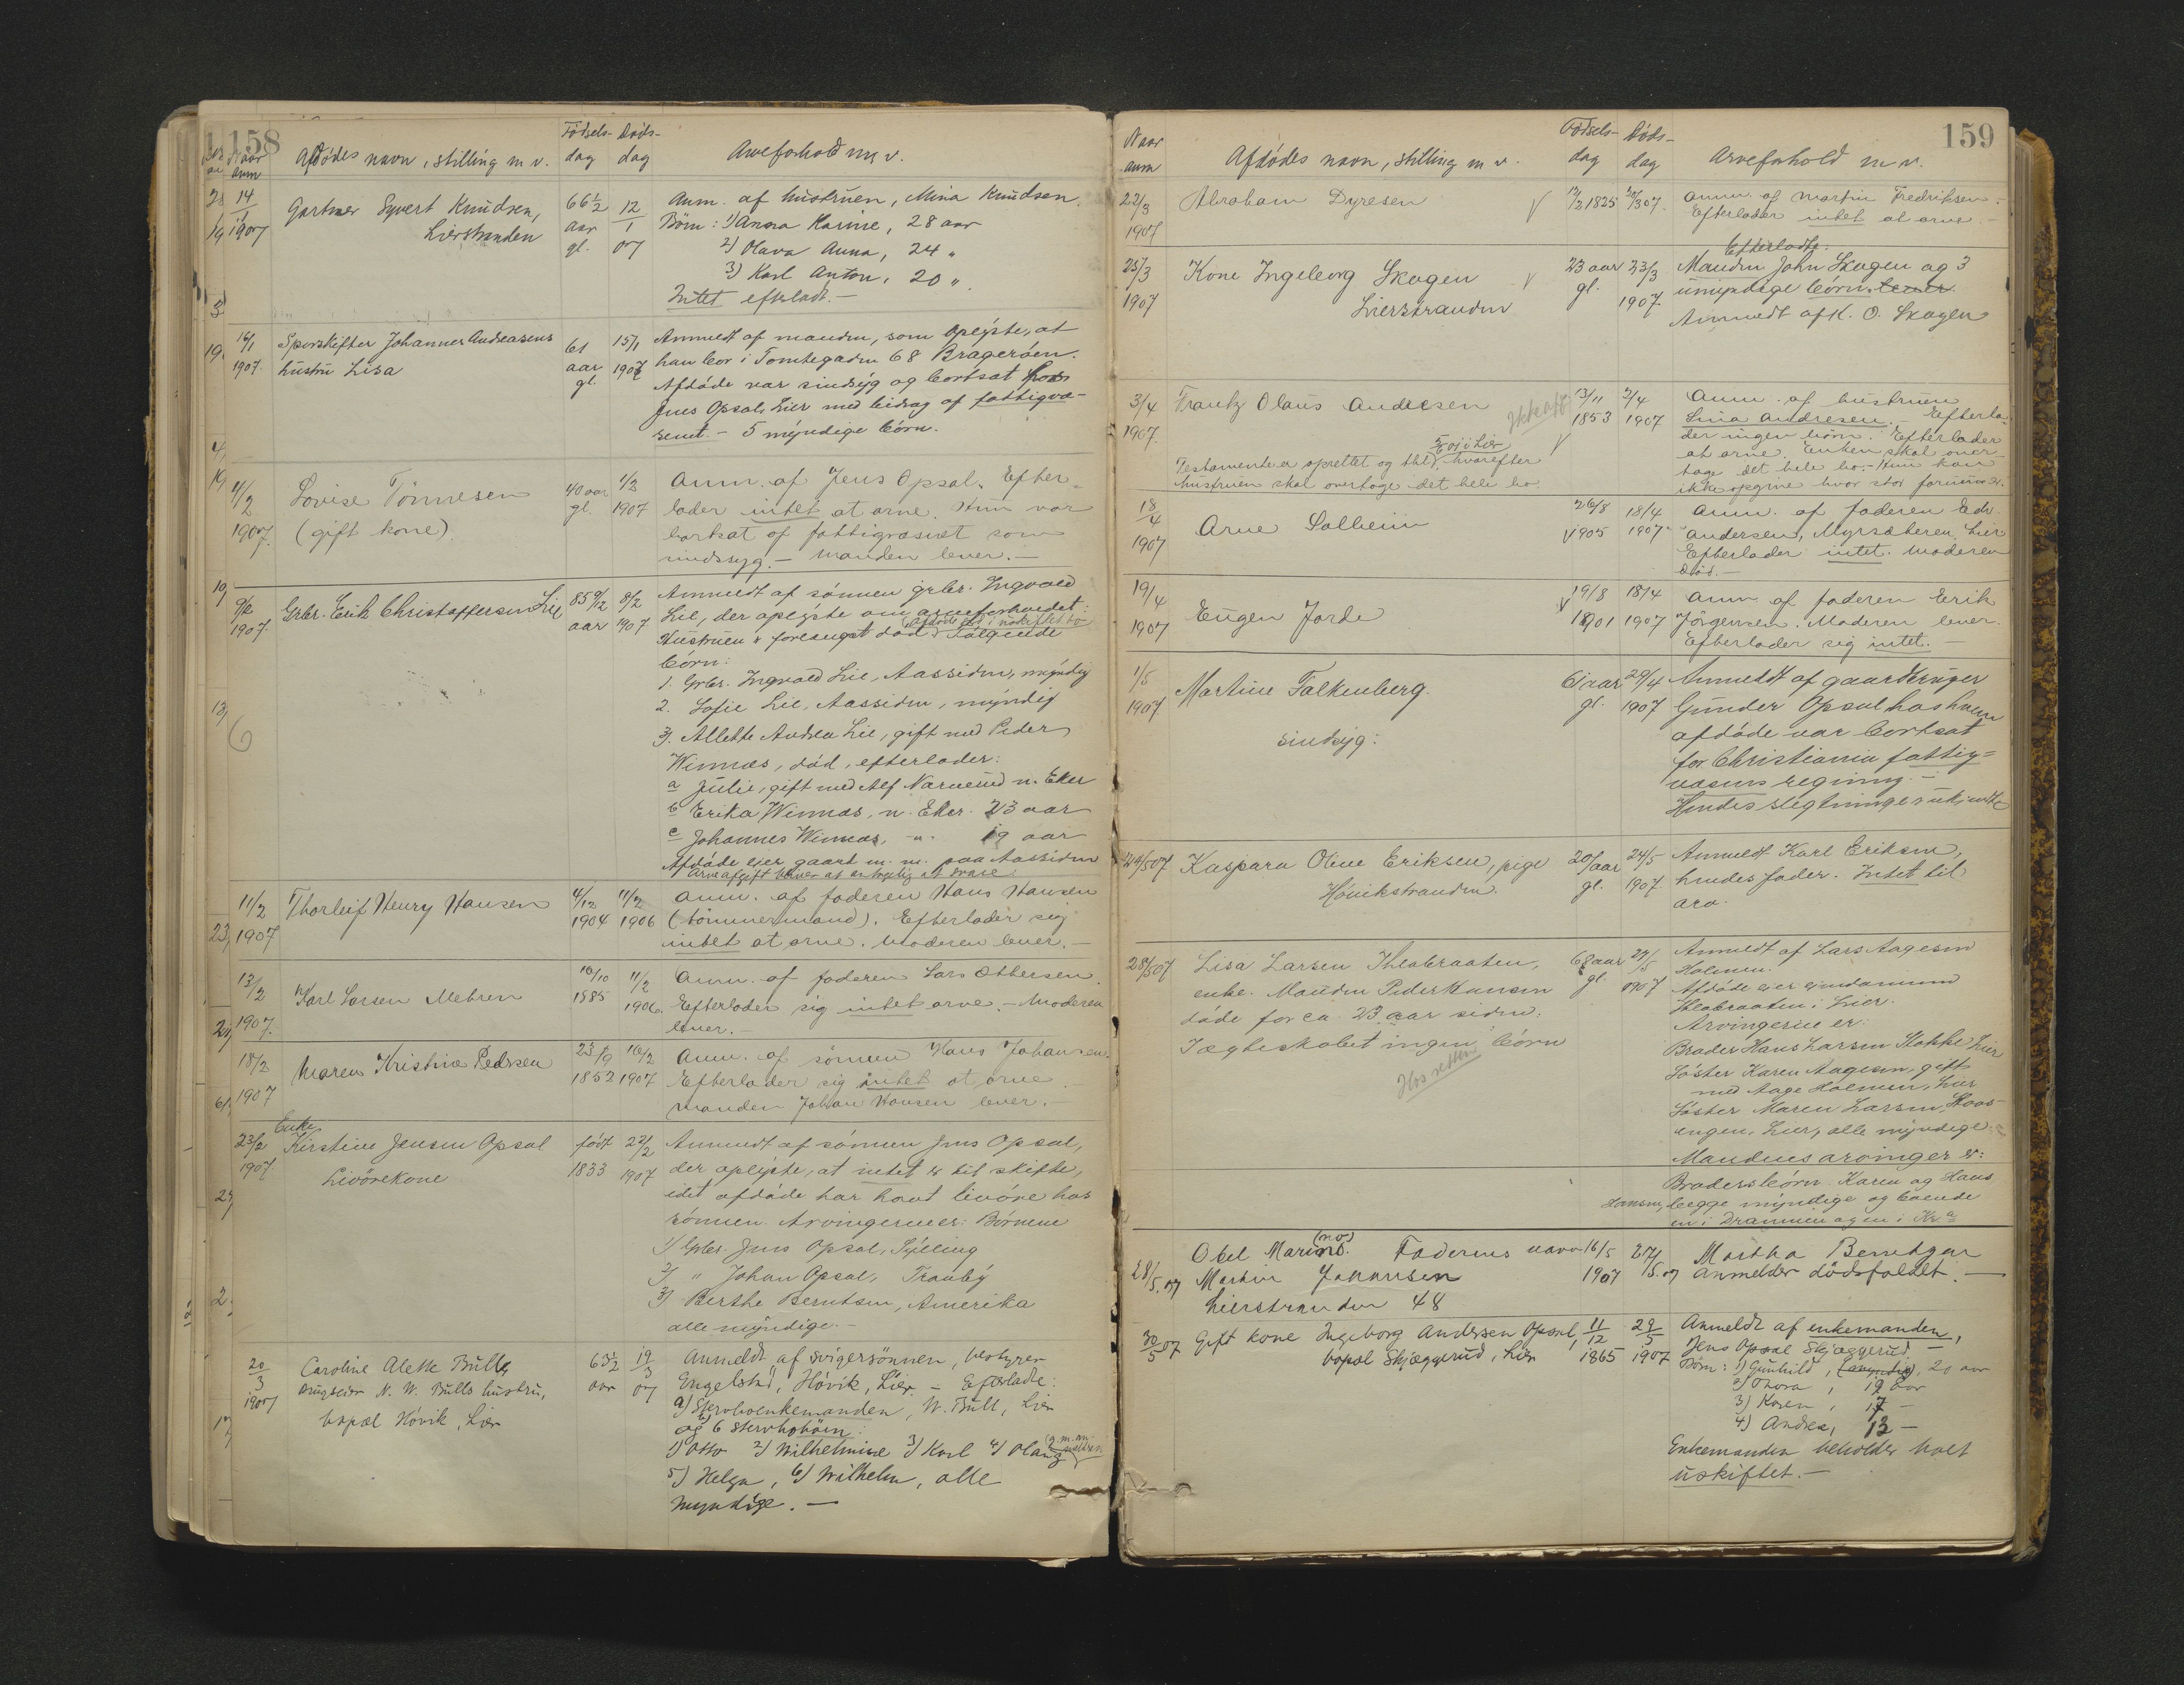 158
Naar anm
Afdødes navn, stilling m v.
Fødsels-dag
Døds-dag
Arveforhold m. v.
14/1 1907
Gartner Syvert Knudsen,
Lierstranden
66½ aar gl.
12/1 07
Anm. af hustruen, Mina Knudsen.
Børn: 1) Anna Karine, 28 aar
2) Olava Anna, 24 "
3) Karl Anton, 20 "
Intet efterladt. -
16/1 1907.
Sporskifter Johannes Andreasens
hustru Lisa
61 aar gl.
15/1 1907
Anmeldt af manden, som oplyste, at
han bor i Tomtegaden 68 Bragerøen.
Afdøde var sindsyg og bortsat hos
Jens Opsal, Lier med bidrag af fattigvæ-
senet. - 5 myndige børn.
4/2 1907.
Lovise Tønnesen
(gift kone)
40 aar gl.
1/2 1907
Anm. af Jens Opsal. Efter-
lader intet at arve. Hun var
bortsat af fattigvæsnet som
sindssyg. - Manden lever. -
9/2 1907.
Grbr. Erik Christoffersen Lie
85 9/12 aar
8/2 1907.
Anmeldt af sønnen grbr. Ingvald
Lie, der oplyste om arveforholdet:
Hustruen er forlængst død. Følgende
børn:
1. Grbr. Ingvald Lie, Aassiden, myndig
2. Sofie Lie, Aassiden, myndig
3. Allette Andrea Lie, gift med Peder
Winnæs, død, efterlader:
a Julie, gift med Alf Narverud n. Eker
b Erika Winnæs, n. Eker. 23 aar
c Johannes Winnæs, -"- 19 aar
Afdøde eier gaard m. m. paa Aassiden
11/2 1907
Thorleif Henry Hansen
4/12 1904
11/2 1906
Anm. af faderen Hans Hansen
(tømmermand). Efterlader sig
intet at arve. Moderen lever. -
13/2 1907.
Karl Larsen Mehren
10/10 1885
11/2 1906.
Anm. af faderen Lars Ottersen.
Efterlader sig intet arve. - Moderen
lever. -
18/2 1907
Maren Kristine Pedersen
23/9 1852
16/2 1907
Anm. af sønnen Hans Johansen.
Efterlader sig intet at arve.
Manden Johan Hansen lever. -
23/2 1907.
Enke
Kirstine Jensen Opsal
Livørekone
født 1833
22/2 1907
Anmeldt af sønnen Jens Opsal,
der oplyste, at intet er til skifte,
idet afdøde har havt livøre hos
sønnen. Arvingerne er: Børnene
1) Grbr. Jens Opsal, Sylling
2) " Johan Opsal, Tranby
3) Berthe Berntsen, Amerika
alle myndige. -
20/3 1907
Caroline Alette Bull,
Brugseier N. W. Bulls hustru,
bopæl Høvik, Lier
63½ aar
19/3 07
Anmeldt af svigersønnen, bestyrer
Engelstad, Høvik, Lier. - Efterladte:
a) Stervboenkemanden, W. Bull, Lier
og b) 6 stervbobørn:
1) Otto 2) Wilhelmine 3) Karl 4) Olaug
5) Helga, 6) Wilhelm, alle
myndige. -
159
Naar anm
Afdødes navn, stilling m v.
Fødsels-dag
Døds-dag
Arveforhold m. v.
22/3 1907
Abraham Dyresen
12/2 1825
20/3 07.
Anm. af Martin Fredriksen.
Efterlader intet at arve. -
25/3 1907
Kone Ingeborg Skogen
Lierstranden
23 aar gl.
23/3 1907.
Efterladte:
Manden John Skogen og 3
umyndige børn.
Anmeldt af K. O. Skogen
3/4 1907.
Frantz Olaus Andresen
Testamente er oprettet og thl. 5/3 07 i Lier, hvorefter
hustruen skal overtage det hele bo.
13/11 1853
2/4 1907
Anm. af hustruen
Lina Andresen. Efterla-
der ingen børn. Efterlader
at arve. Enken skal over-
tage det hele bo. - Hun kan
ikke opgive hvor stor formuen er.
18/4 1907
Arne Solheim
26/8 1905
18/4 1907
Anm. af faderen Edv.
Andersen, Myrsæteren, Lier
Efterlader intet. Moderen
død. -
19/4 1907
Eugen Jorde
19/8 1901
18/4 1907
Anm. af faderen Erik
Jørgensen. Moderen lever.
Efterlader sig intet. -
1/5 1907
Martine Falkenberg.
sindsyg:
61 aar gl.
29/4 1907
Anmeldt af gaardbruger
Gunder Opsal hos hvem
afdøde var bortsat
for Christiania fattig-
væsens regning. -
Hendes slegtninger ukjendte
24/5 07
Kaspara Oline Eriksen, pige
Høvikstranden.
20 aar gl.
24/5 1907.
Anmeldt Karl Eriksen,
hendes fader. Intet til
arv.
28/5 07
Lisa Larsen Theabraaten,
enke. Manden Peder Hansen
døde for ca. 23 aar siden.
I ægteskabet ingen børn
68 aar gl.
27/5 1907
Anmeldt af Lars Aagesen
Holmen.
Afdøde eier eiendommen
Theabraaten i Lier.
Arvingerne er:
Broder Hans Larsen Stokke Lier
Søster Karen Aagesen, gift
med Aage Holmen, Lier
Søster Maren Larsen,
engen, Lier, alle myndige.
Mandens arvinger er:
Brodersbørn. Karen og Hans
Hansen, begge myndige og boende
en i Drammen og en i Kr.a
28/5. 07
Obel Marino. Faderens navn
Martin Johannsen
Lierstranden 48
16/5 1907
27/5. 07
Martha Berntzen
anmelder dødsfaldet. -
30/5 07
Gift kone Ingeborg Andersen Opsal,
bopæl Skjæggerud, Lier
11/12 1865
29/5 1907
Anmeldt af enkemanden,
Jens Opsal Skjæggerud -
Børn: 1) Gunhild, 20 aar
2) Thora, 19 aar
3) Karen, 17 -
4) Andrea, 13 -
Enkemanden beholder boet
uskiftet. -